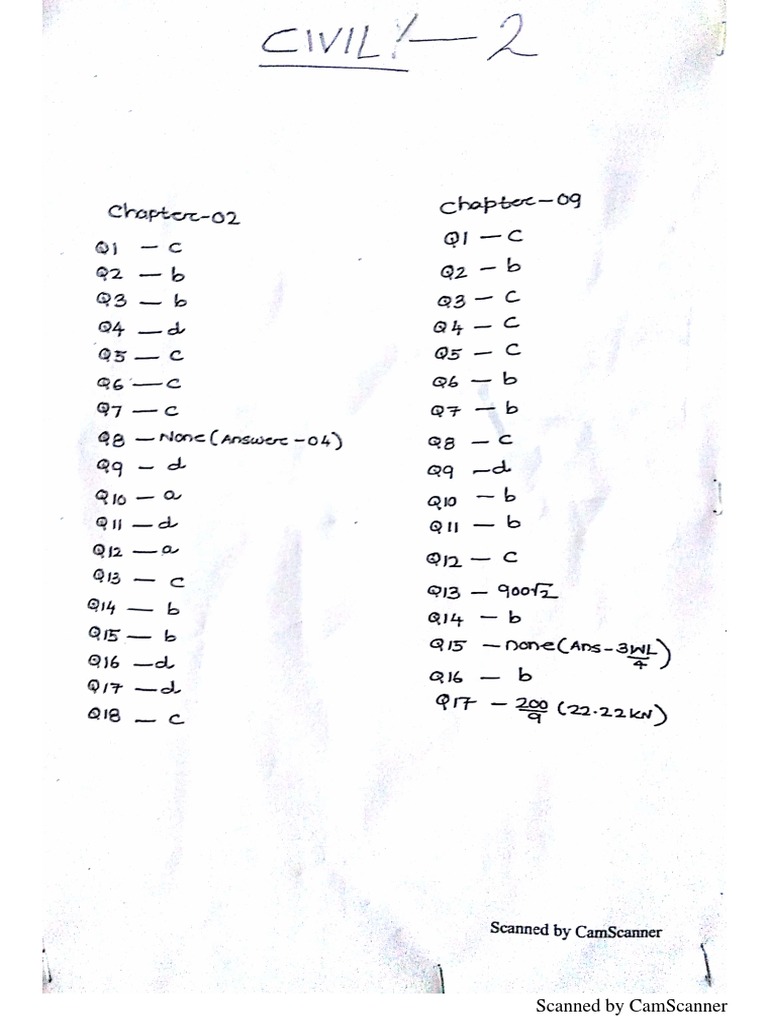 CIVIL - 2
Chapter-02
Q1 - c
Q2 - b
Q3 - b
Q4 - d
Q5 - c
Q6 - c
Q7 - c
Q8 - None (Answer - 04)
Q9 - d
Q10 - a
Q11 - d
Q12 - a
Q13 - c
Q14 - b
Q15 - b
Q16 - d
Q17 - d
Q18 - c
Chapter-09
Q1 - c
Q2 - b
Q3 - c
Q4 - c
Q5 - c
Q6 - b
Q7 - b
Q8 - c
Q9 - d
Q10 - b
Q11 - b
Q12 - c
Q13 - 900√2
Q14 - b
Q15 - none (Ans - 3WL/4)
Q16 - b
Q17 - 200/9 (22.22 kN)
Scanned by CamScanner
Scanned by CamScanner